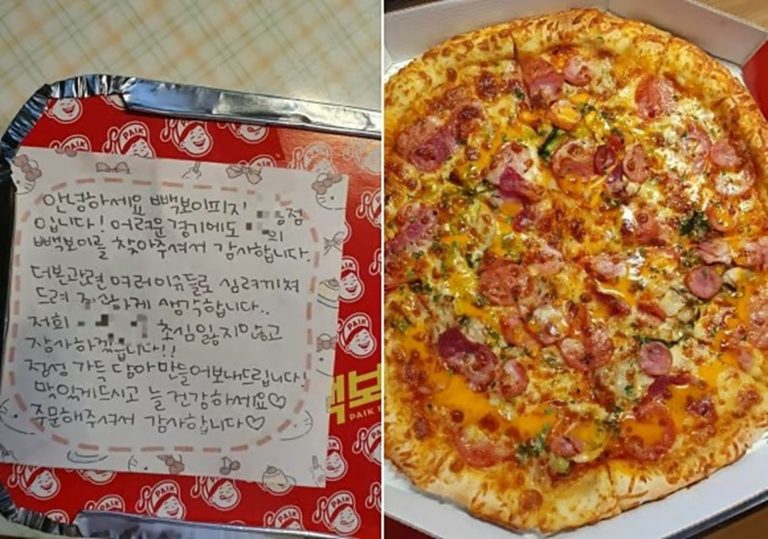 안녕하세요 빽보이피자 점
입니다! 어려운경기에도 의
빽보이를 찾아주셔서 감사합니다.
더본관련 여러이슈들로 심려끼쳐
드려 죄산하게 생각합니다..
저희 초심잃지않고
장사하겠습니다!!
정성 가득담아만들어보내드립니다!
맛있게드시고 늘건강하세요♡
주문해주셔서 감사합니다♡
PAIK
PAIK
PAIK
PAIK
PAIK
빽보
PAIK B